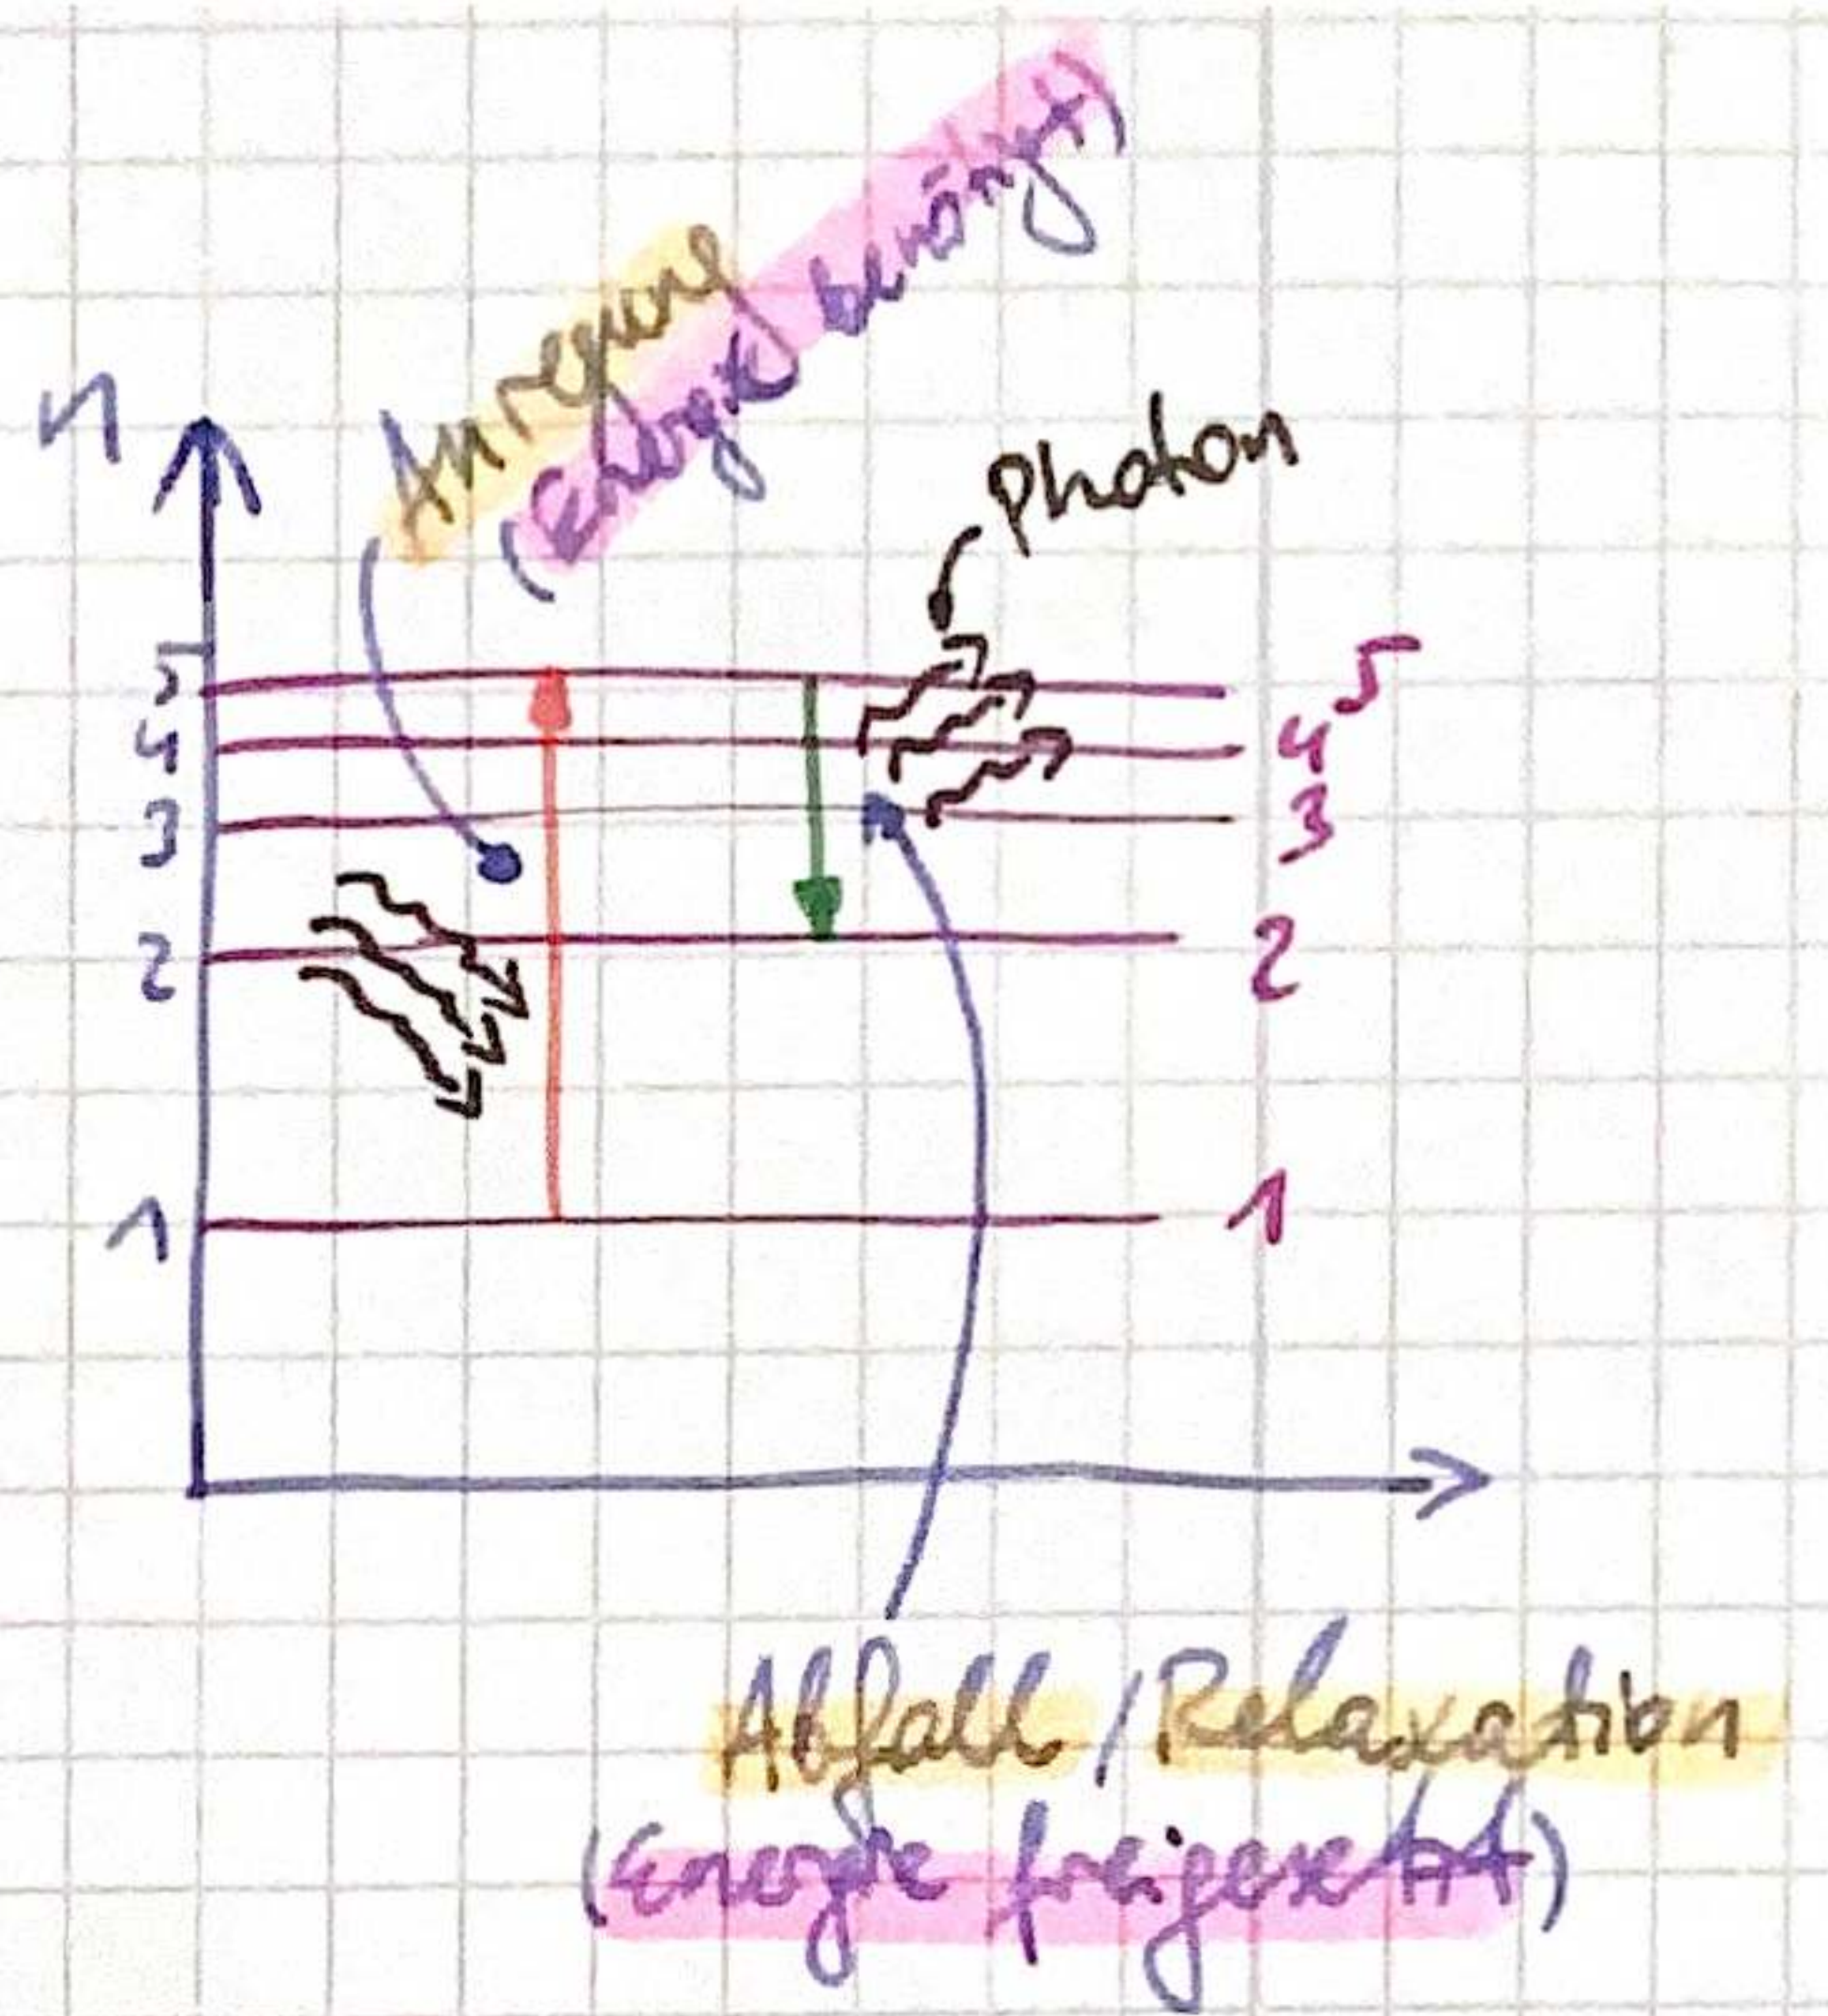 Anregung
(Energie benötigt)
n
Photon
5
4
3
2
1
5
4
3
2
1
Abfall / Relaxation
(Energie freigesetzt)